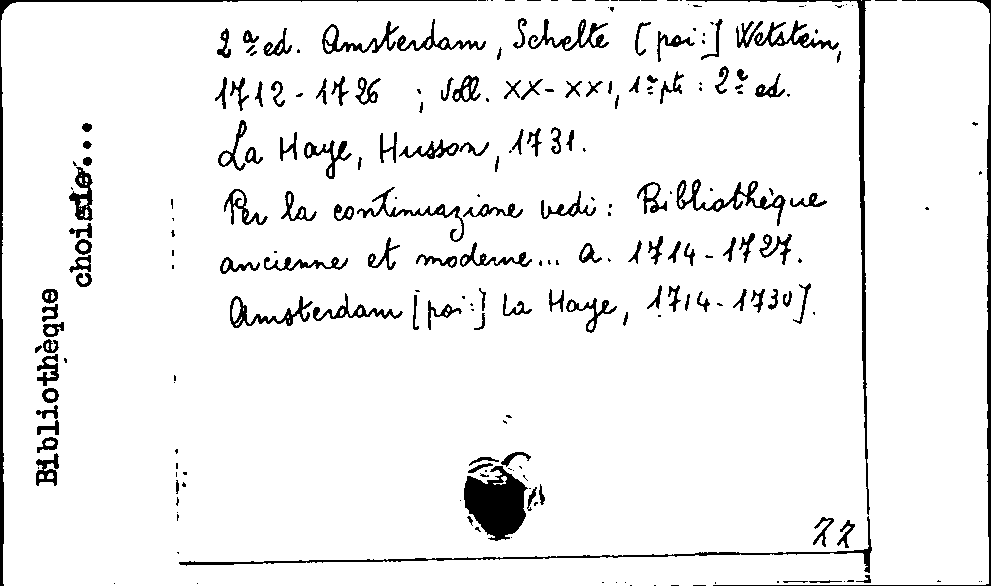 Bibliothèque
choisie...
2ª ed. Amsterdam, Schelte [poi:] Wetstein,
1712-1726 ; Voll. XX-XXI, 1ª pte : 2ª ed.
La Haye, Husson, 1731.
Per la continuazione vedi: Bibliothèque
ancienne et moderne... A. 1714-1727.
Amsterdam [poi:] La Haye, 1714-1730].